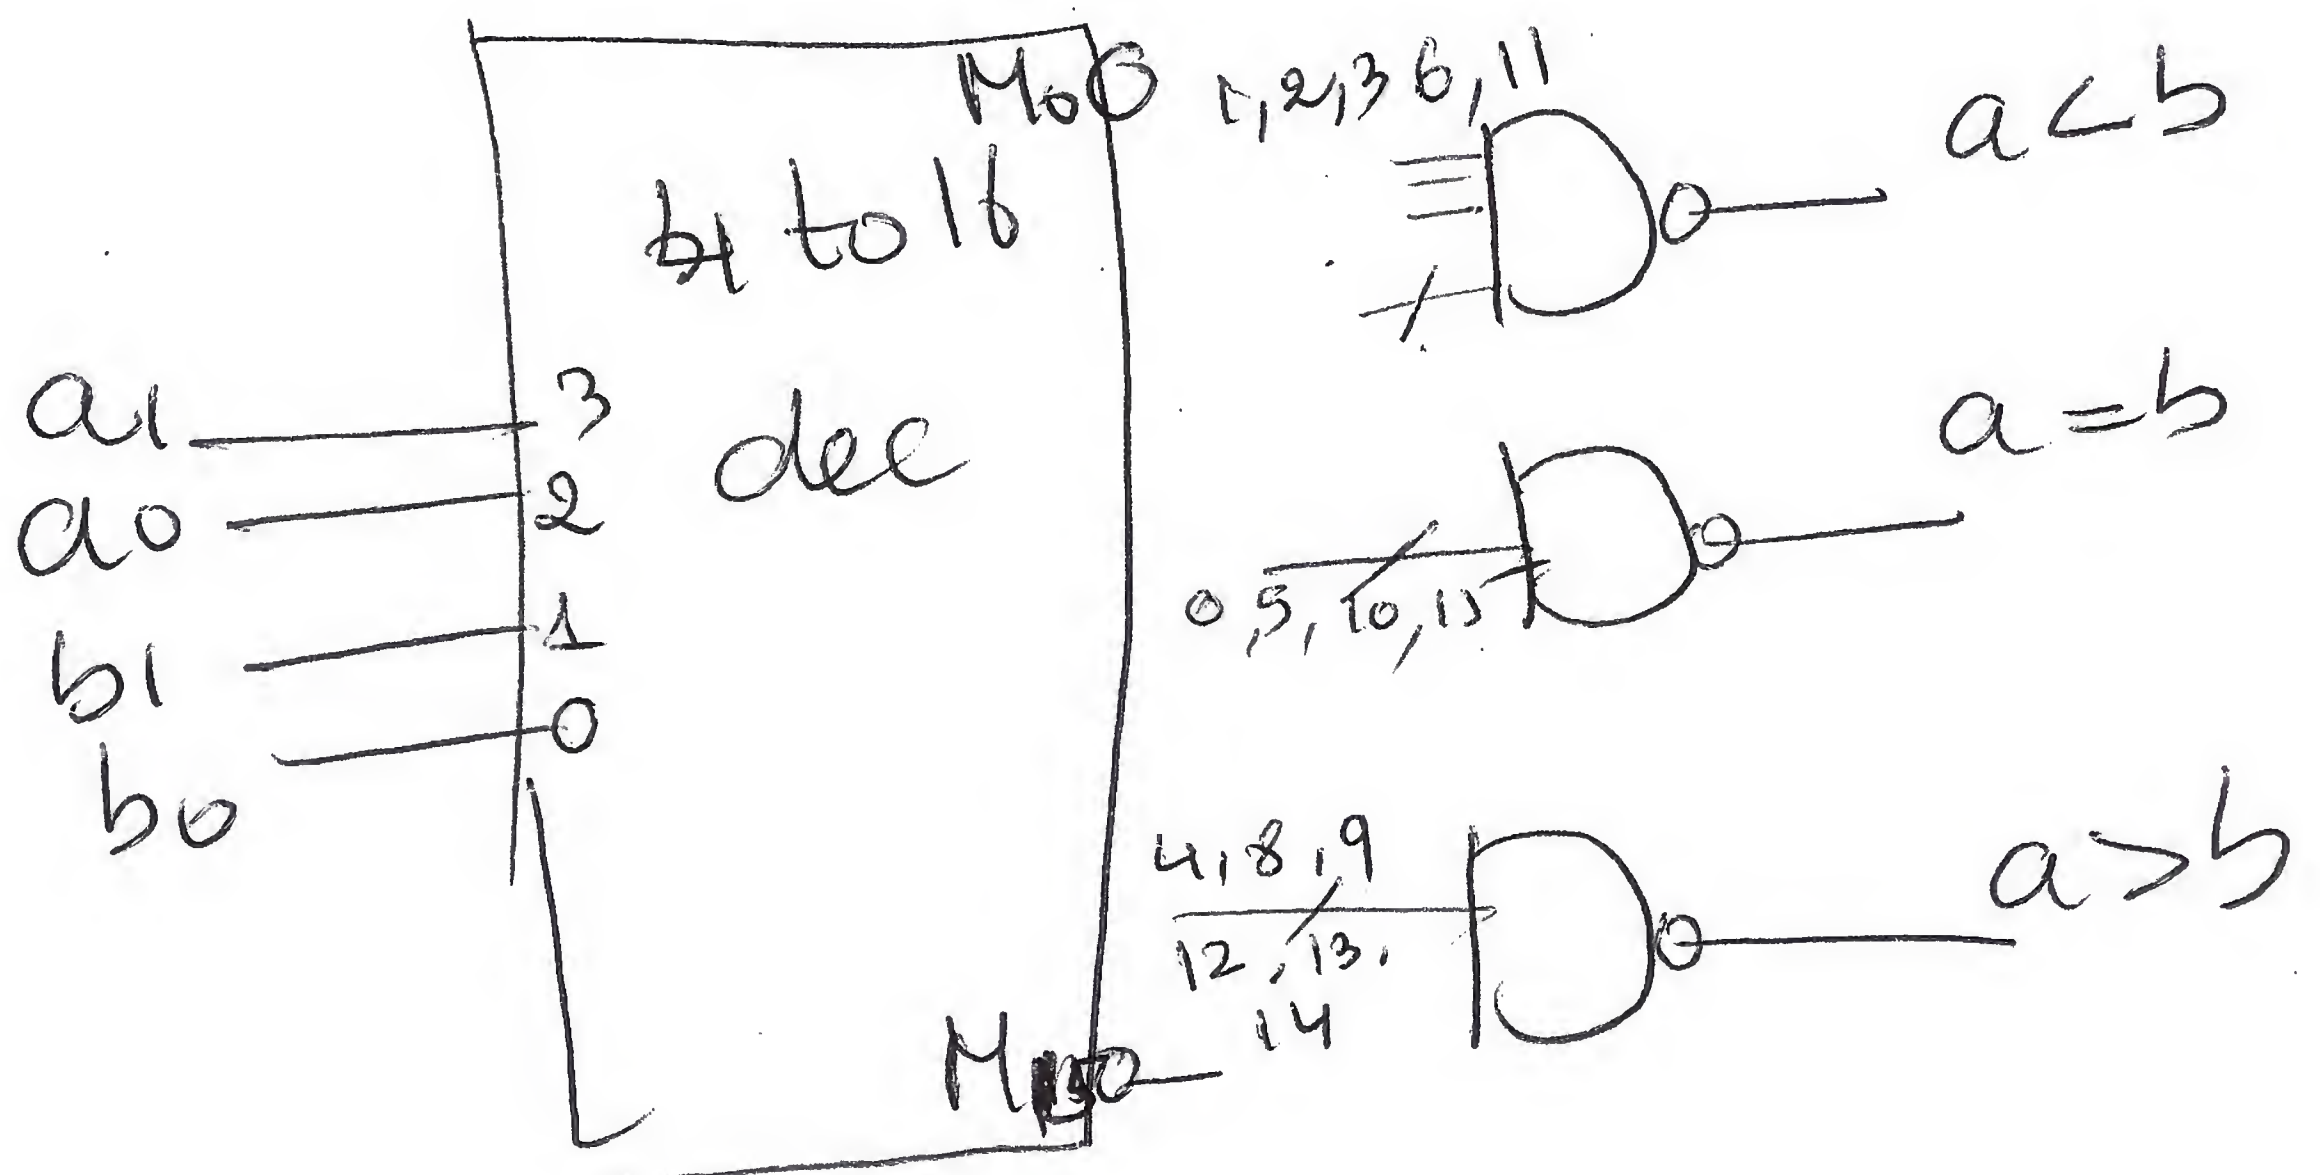 M0
1,2,3 6,11
a<b
4 to 16
dec
a1
3
a0
2
b1
1
b0
0
a=b
0,5,10,15
4,8,9
12,13,
14
a>b
M15